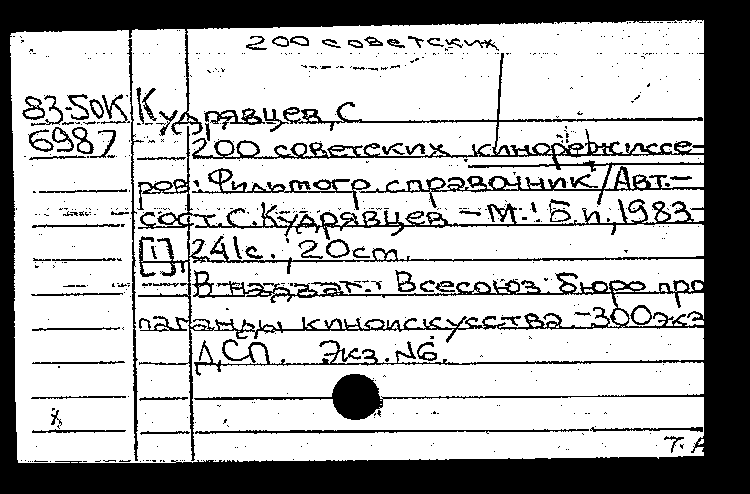 200 советских
83-50К Кудрявцев, С
6987 200 советских кинорежиссе-
ров: Фильмогр. справочник/Авт.-
сост. С. Кудрявцев. - М.: Б.и., 1983-
[1], 241с.; 20см.
В надзаг.: Всесоюз. бюро про
паганды киноискусства. - 300экз
ДСП. Экз. №6.
Т.